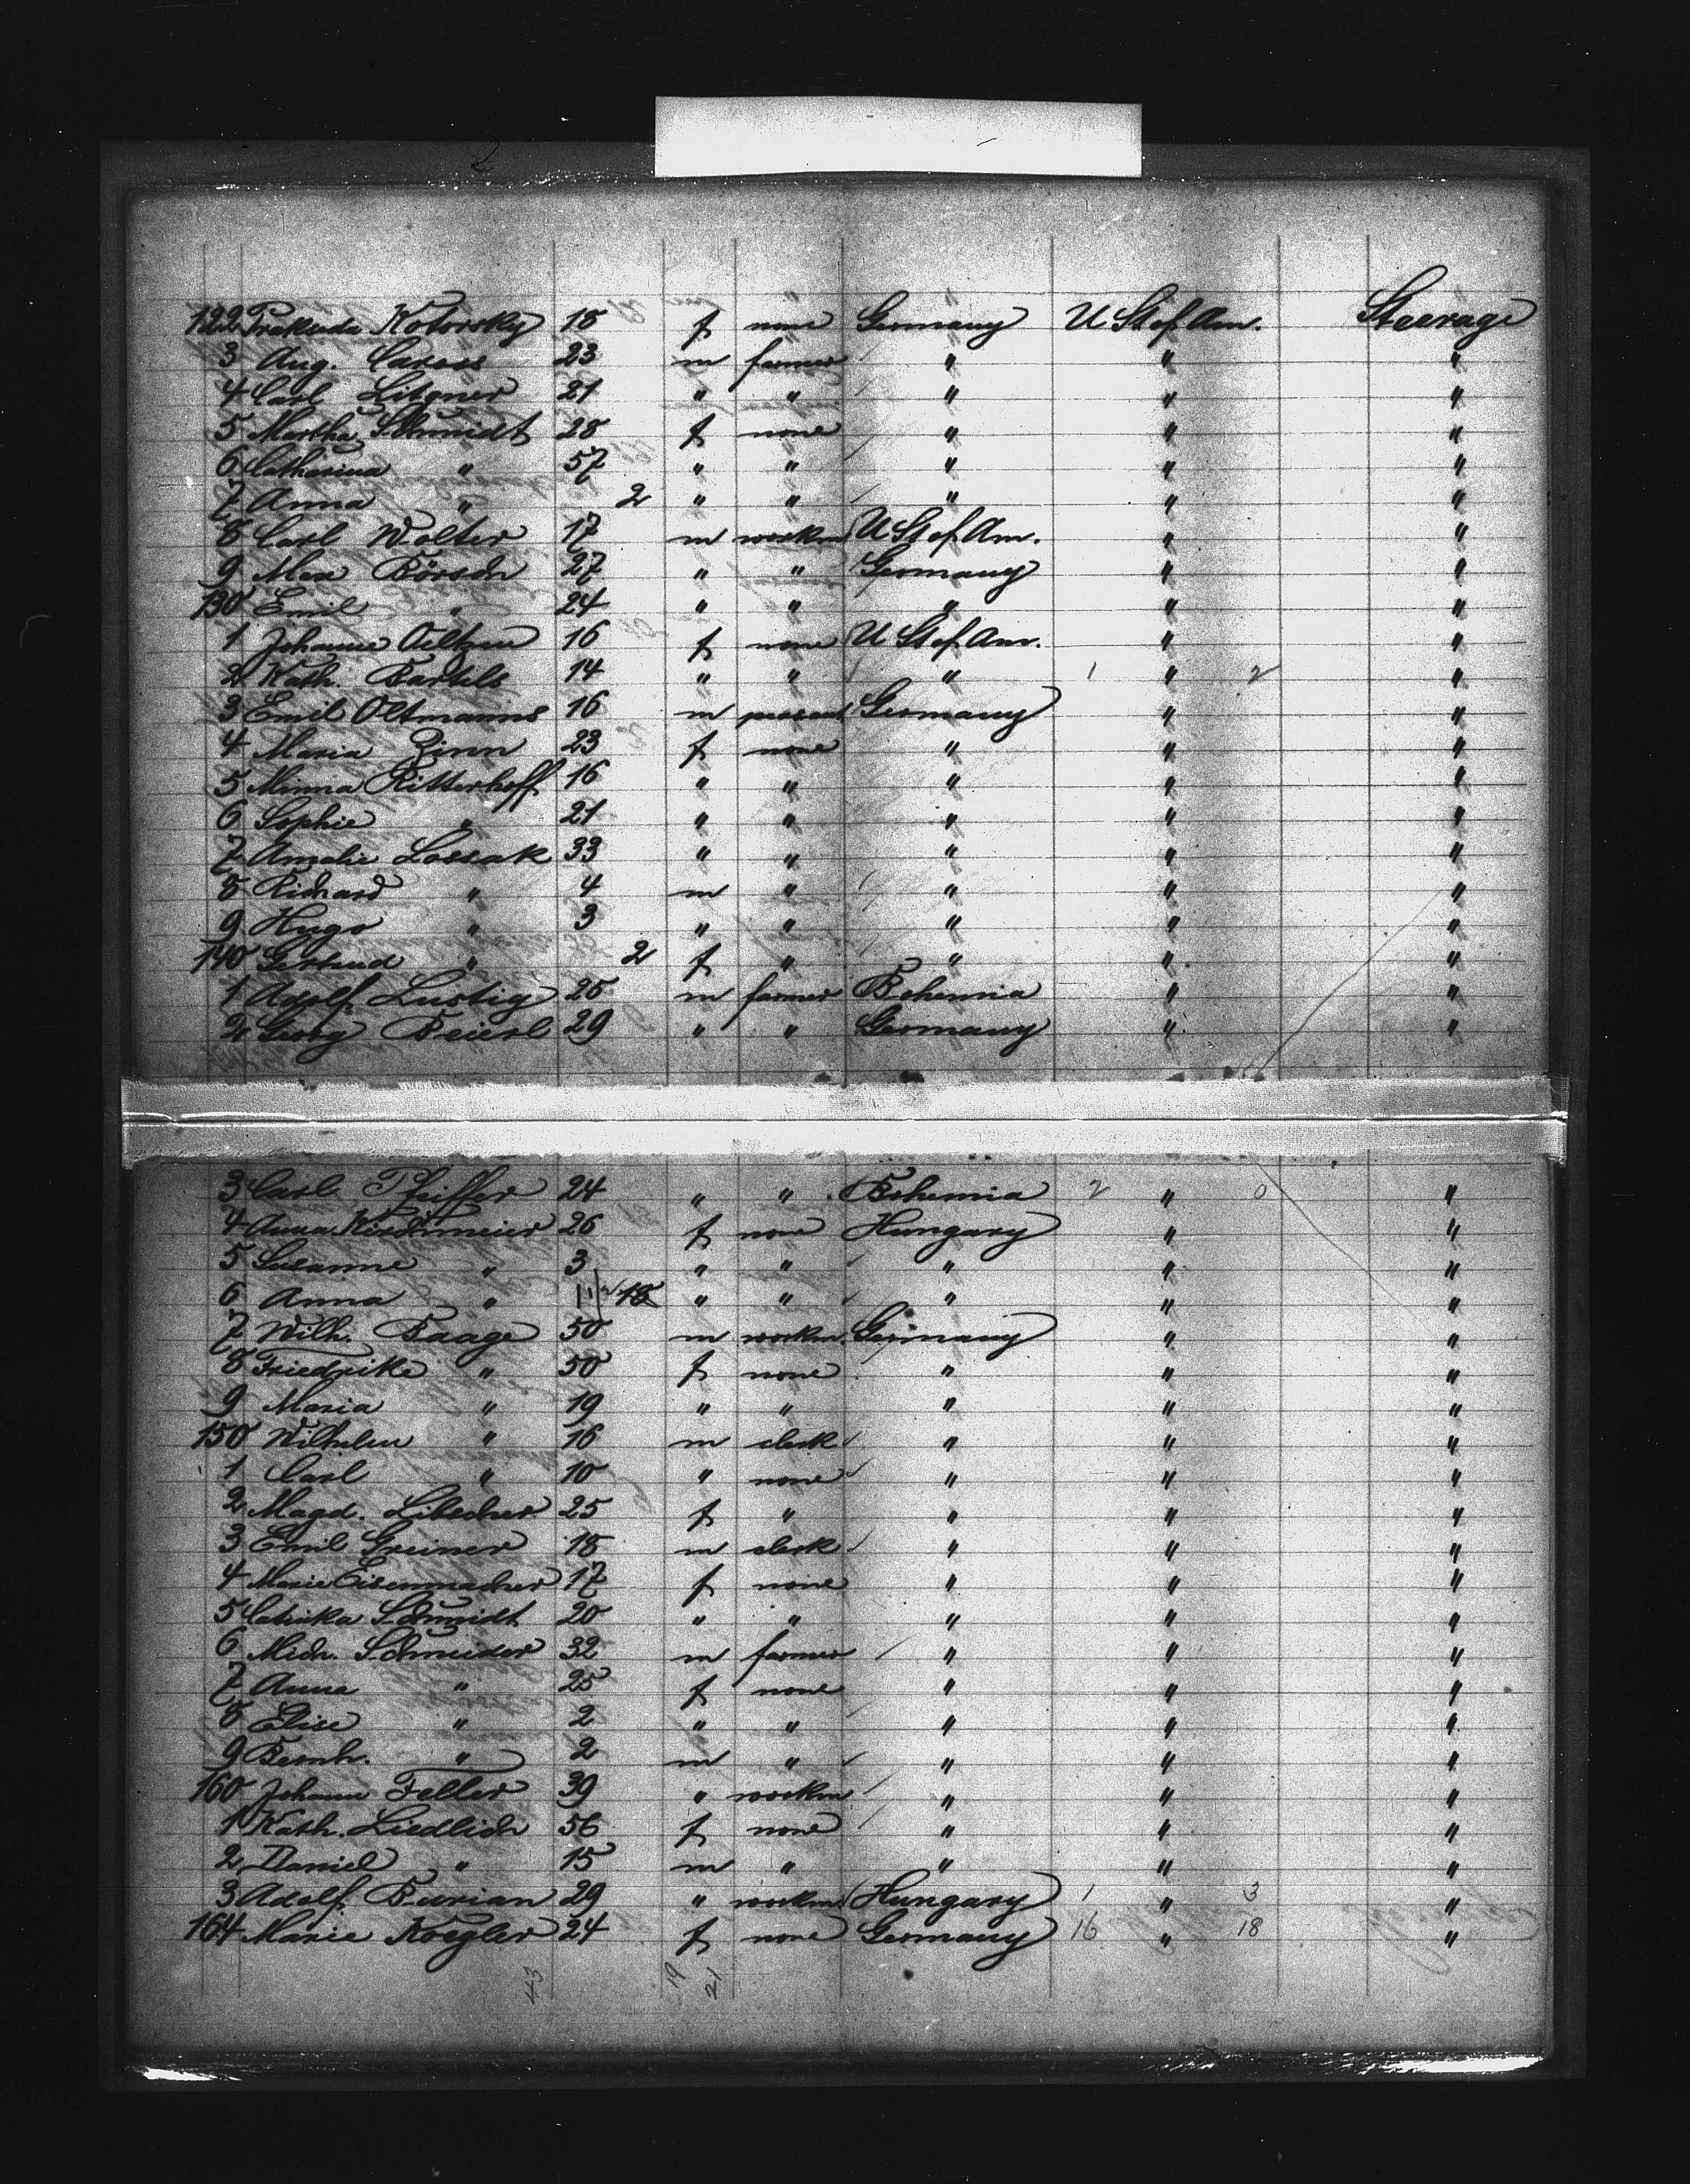 122 Praksada Kotorsky 18 f none Germany U St of Am. Steerage
3 Aug. 23 m farmer " " "
4 Carl Litgner 21 " " " " "
5 Martha Schmidt 28 f none " " "
6 Catharina " 57 " " " " "
7 Anna " 2 " " " " "
8 Carl Wolter 17 m workm U St of Am. " "
9 Max Börsch 27 " " Germany " "
130 Emil " 24 " " " " "
1 Johanne Oeltzen 16 f none U St of Am. " "
2 Kath. Bartels 14 " " " 1 " 2 "
3 Emil Oltmanns 16 m Germany " "
4 Maria Zinn 23 f none " " "
5 Minna Ritterhoff 16 " " " " "
6 Sophie " 21 " " " " "
7 Amalie Lossak 33 " " " " "
8 Richard " 4 m " " " "
9 Hugo " 3 " " " " "
140 Gertrud " 2 f " " " "
1 Adolf Lustig 25 m farmer Bohemia " "
2 Georg Beierl 29 " " Germany " "
3 Carl Pfeiffer 24 " " Bohemia 2 " 0 "
4 Anna Kirchmeier 26 f none Hungary " "
5 Susanne " 3 " " " " "
6 Anna " 11/ " " " " "
7 Wilh. Baage 50 m workm. Germany " "
8 Friedrike " 50 f none " " "
9 Maria " 19 " " " " "
150 Wilhelm " 16 m clerk " " "
1 Carl " 10 " none " " "
2 Magd. Libscher 25 f " " " "
3 Emil Greiner 18 m clerk " " "
4 Marie Eisenmacher 17 f none " " "
5 Schmidt 20 " " " " "
6 Mich. Schneider 32 m farmer " " "
7 Anna " 25 f none " " "
8 Elise " 2 " " " " "
9 Bernh. " 2 m " " " "
160 Johann Feller 39 " workm " " "
1 Kath. Liedlich 56 f none " " "
2 Daniel " 15 m " " " "
3 Adolf Burian 29 " workm. Hungary 1 " 3 "
164 Marie Koegler 24 f none Germany 16 " 18 "
43 19 21